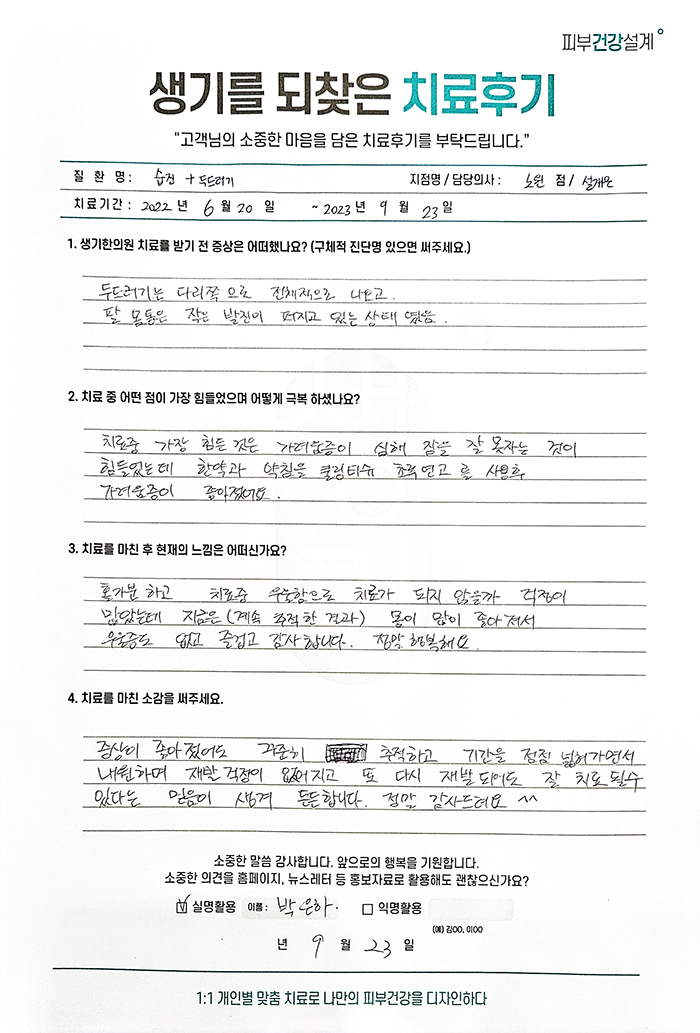 피부건강설계
생기를 되찾은 치료후기
"고객님의 소중한 마음을 담은 치료후기를 부탁드립니다."
질 환 명 : 습진 + 두드러기 지점명 / 담당의사 : 노원 점 / 설재은
치료기간 : 2022 년 6 월 20 일 ~ 2023 년 9 월 23 일
1. 생기한의원 치료를 받기 전 증상은 어떠했나요? (구체적 진단명 있으면 써주세요.)
두드러기는 다리쪽으로 전체적으로 나오고.
팔 몸통은 작은 발진이 퍼지고 있는 상태 였음.
2. 치료 중 어떤 점이 가장 힘들었으며 어떻게 극복 하셨나요?
치료중 가장 힘든 것은 가려움증이 심해 잠을 잘 못자는 것이
힘들었는데 한약과 약침을 쿨링티슈 초록연고를 사용후
가려움증이 좋아졌어요.
3. 치료를 마친 후 현재의 느낌은 어떠신가요?
홀가분 하고 치료중 우울함으로 치료가 되지 않을까 걱정이
많았는데 지금은 (계속 추적한 결과) 몸이 많이 좋아져서
우울증도 없고 즐겁고 감사합니다. 정말 행복해요.
4. 치료를 마친 소감을 써주세요.
증상이 좋아졌어도 꾸준히 추적하고 기간을 점점 넓혀가면서
내원하며 재발 걱정이 없어지고 또 다시 재발 되어도 잘 치료 될수
있다는 믿음이 생겨 든든합니다. 정말 감사드려요 ^^
소중한 말씀 감사합니다. 앞으로의 행복을 기원합니다.
소중한 의견을 홈페이지, 뉴스레터 등 홍보자료로 활용해도 괜찮으신가요?
실명활용 이름 : 박은하. 익명활용
(예) 김OO, 이OO
년 9 월 23 일
1:1 개인별 맞춤 치료로 나만의 피부건강을 디자인하다